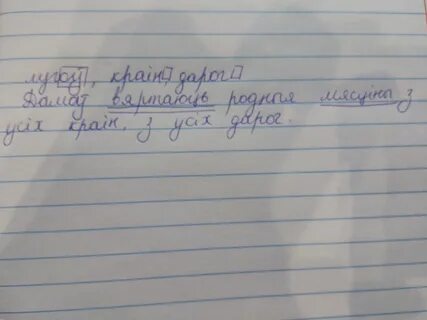 лугоў, краін, дарог
Дамаў вяртаюць родныя мясціны з
усіх краін, з усіх дарог.